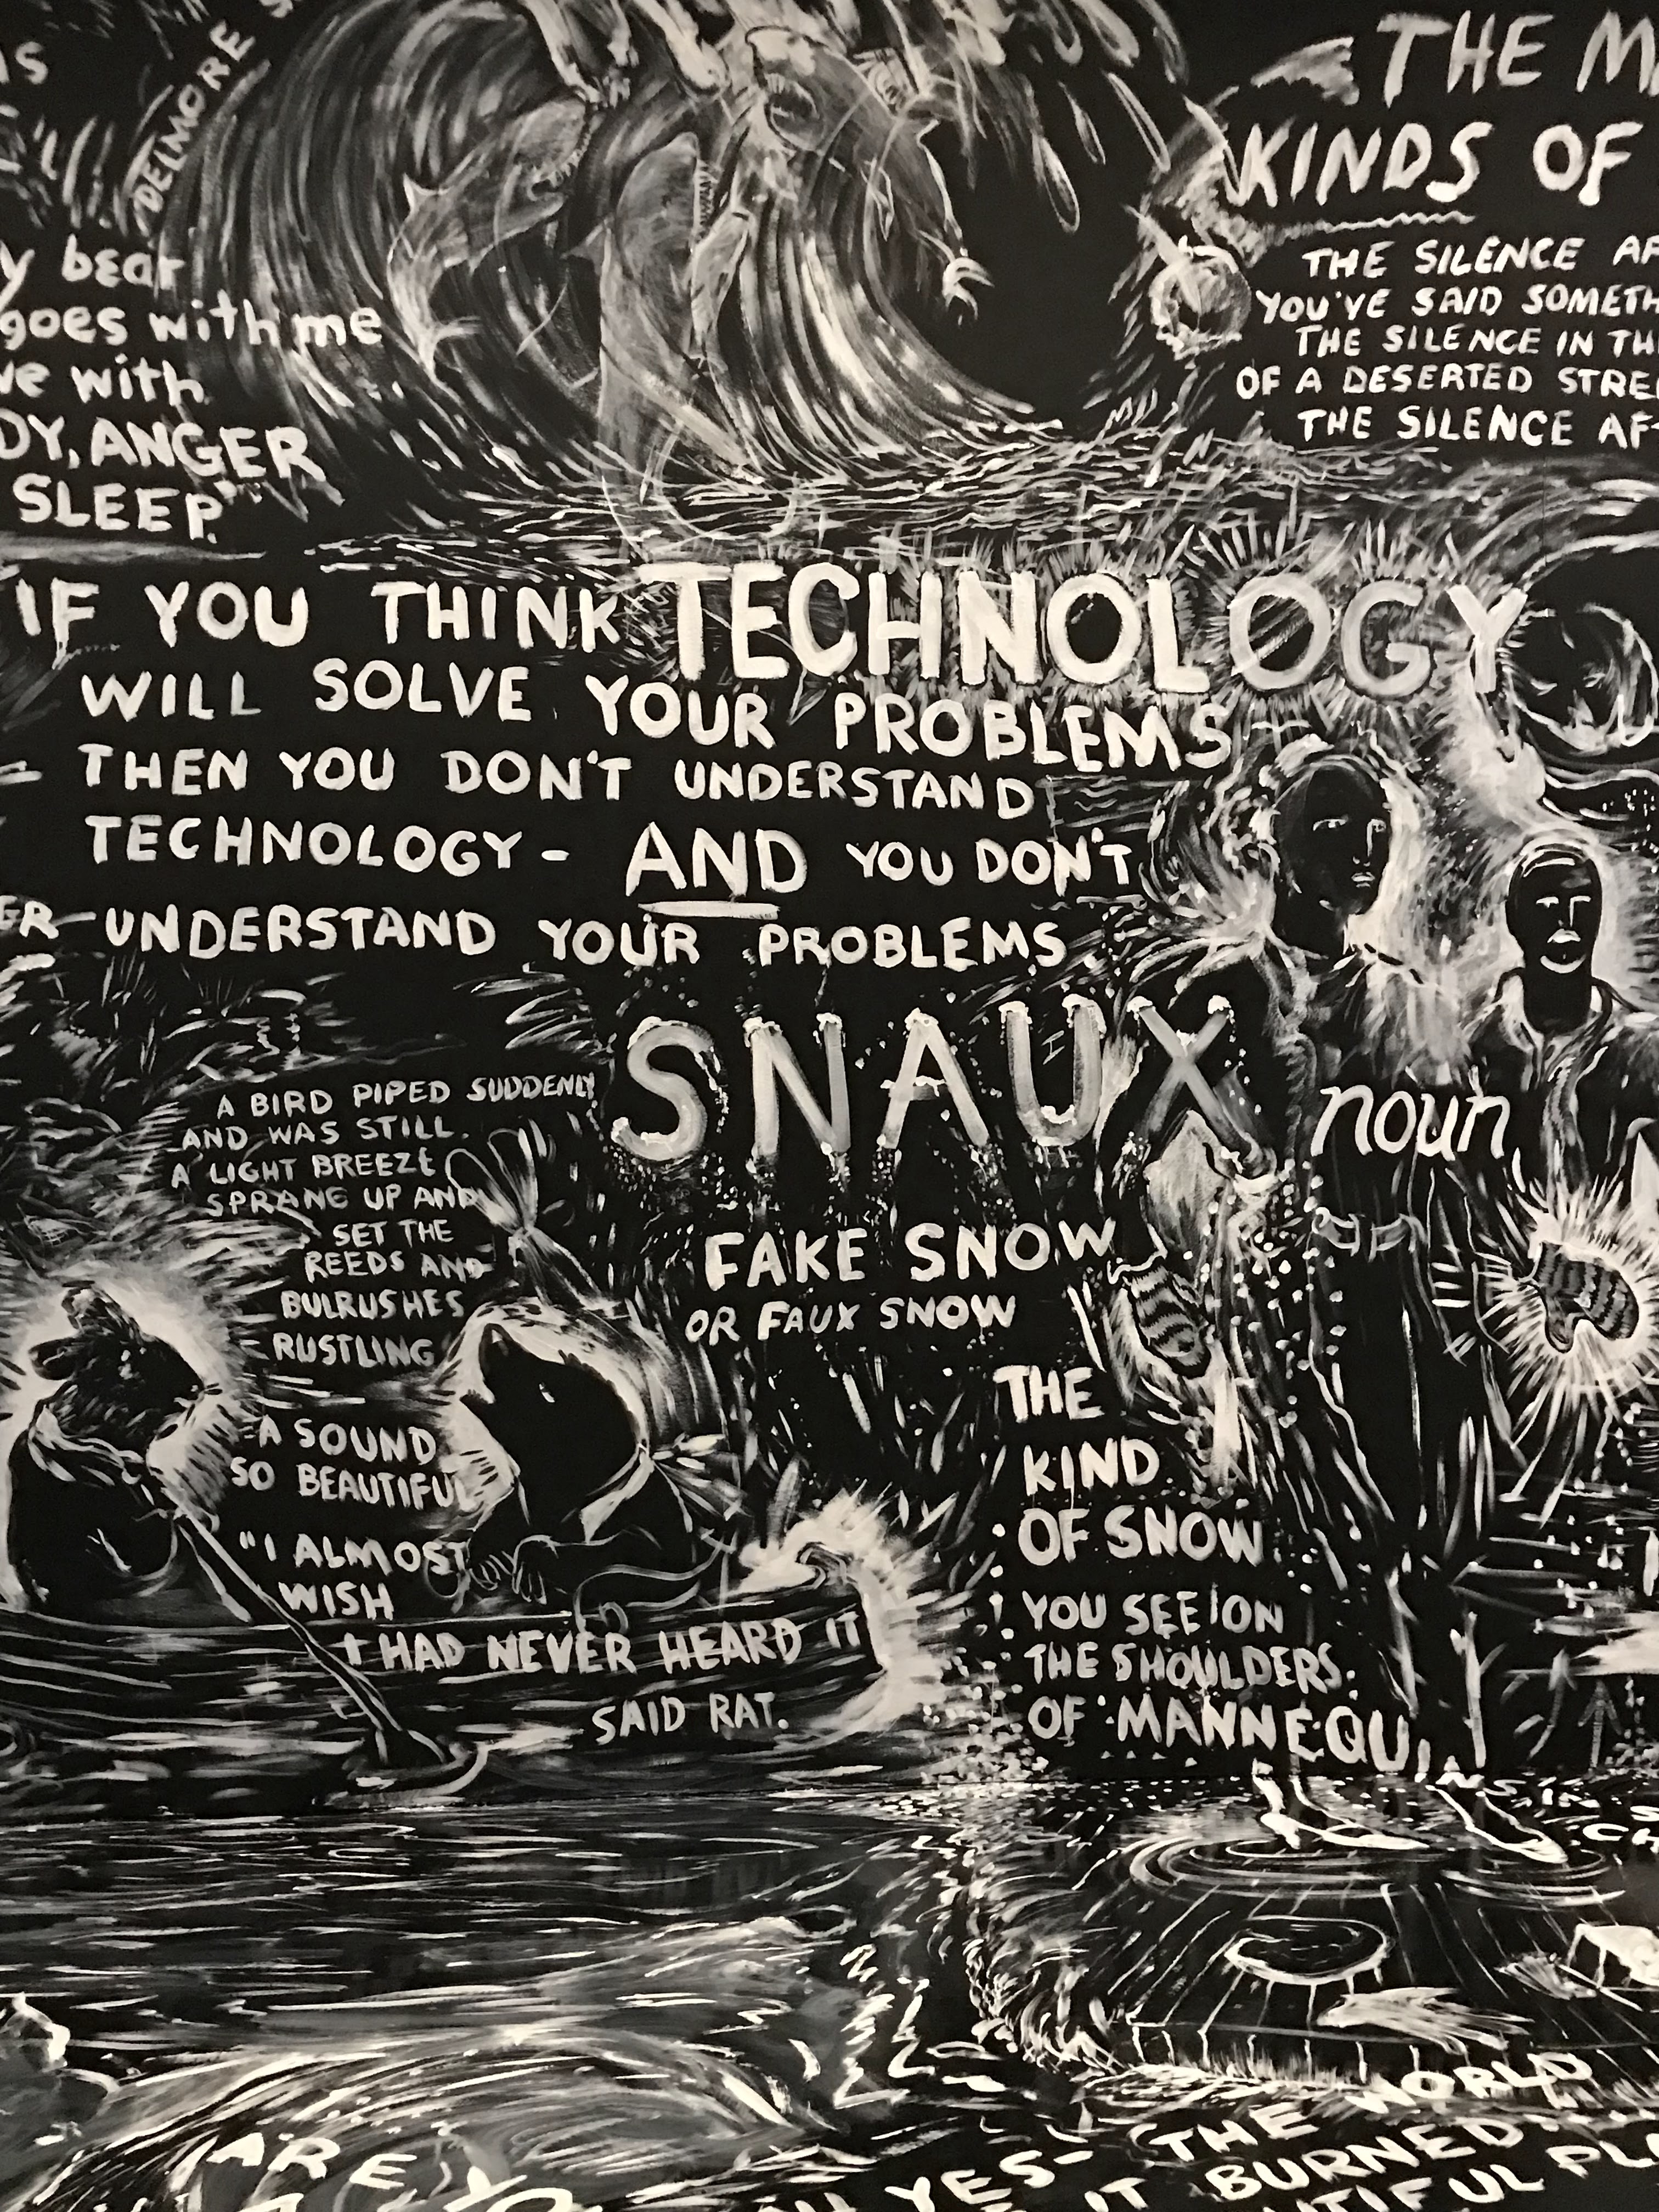 DELMORE
THE
KINDS OF
THE SILENCE
YOU'VE SAID
THE SILENCE IN
OF A DESERTED
THE SILENCE
bear
goes with me
with
ANGER
SLEEP"
IF YOU THINK TECHNOLOGY
WILL SOLVE YOUR PROBLEMS
THEN YOU DON'T UNDERSTAND
TECHNOLOGY - AND YOU DON'T
UNDERSTAND YOUR PROBLEMS
SNAUX noun
FAKE SNOW
OR FAUX SNOW
THE
KIND
OF SNOW
YOU SEE ON
THE SHOULDERS
OF MANNEQUINS
A BIRD PIPED SUDDENLY
AND WAS STILL.
A LIGHT BREEZE
SPRANG UP AND
SET THE
REEDS AND
BULRUSHES
RUSTLING
A SOUND
SO BEAUTIFUL
"I ALMOST
WISH
I HAD NEVER HEARD IT
SAID RAT.
ARE
YES- THE WORLD
IT BURNED